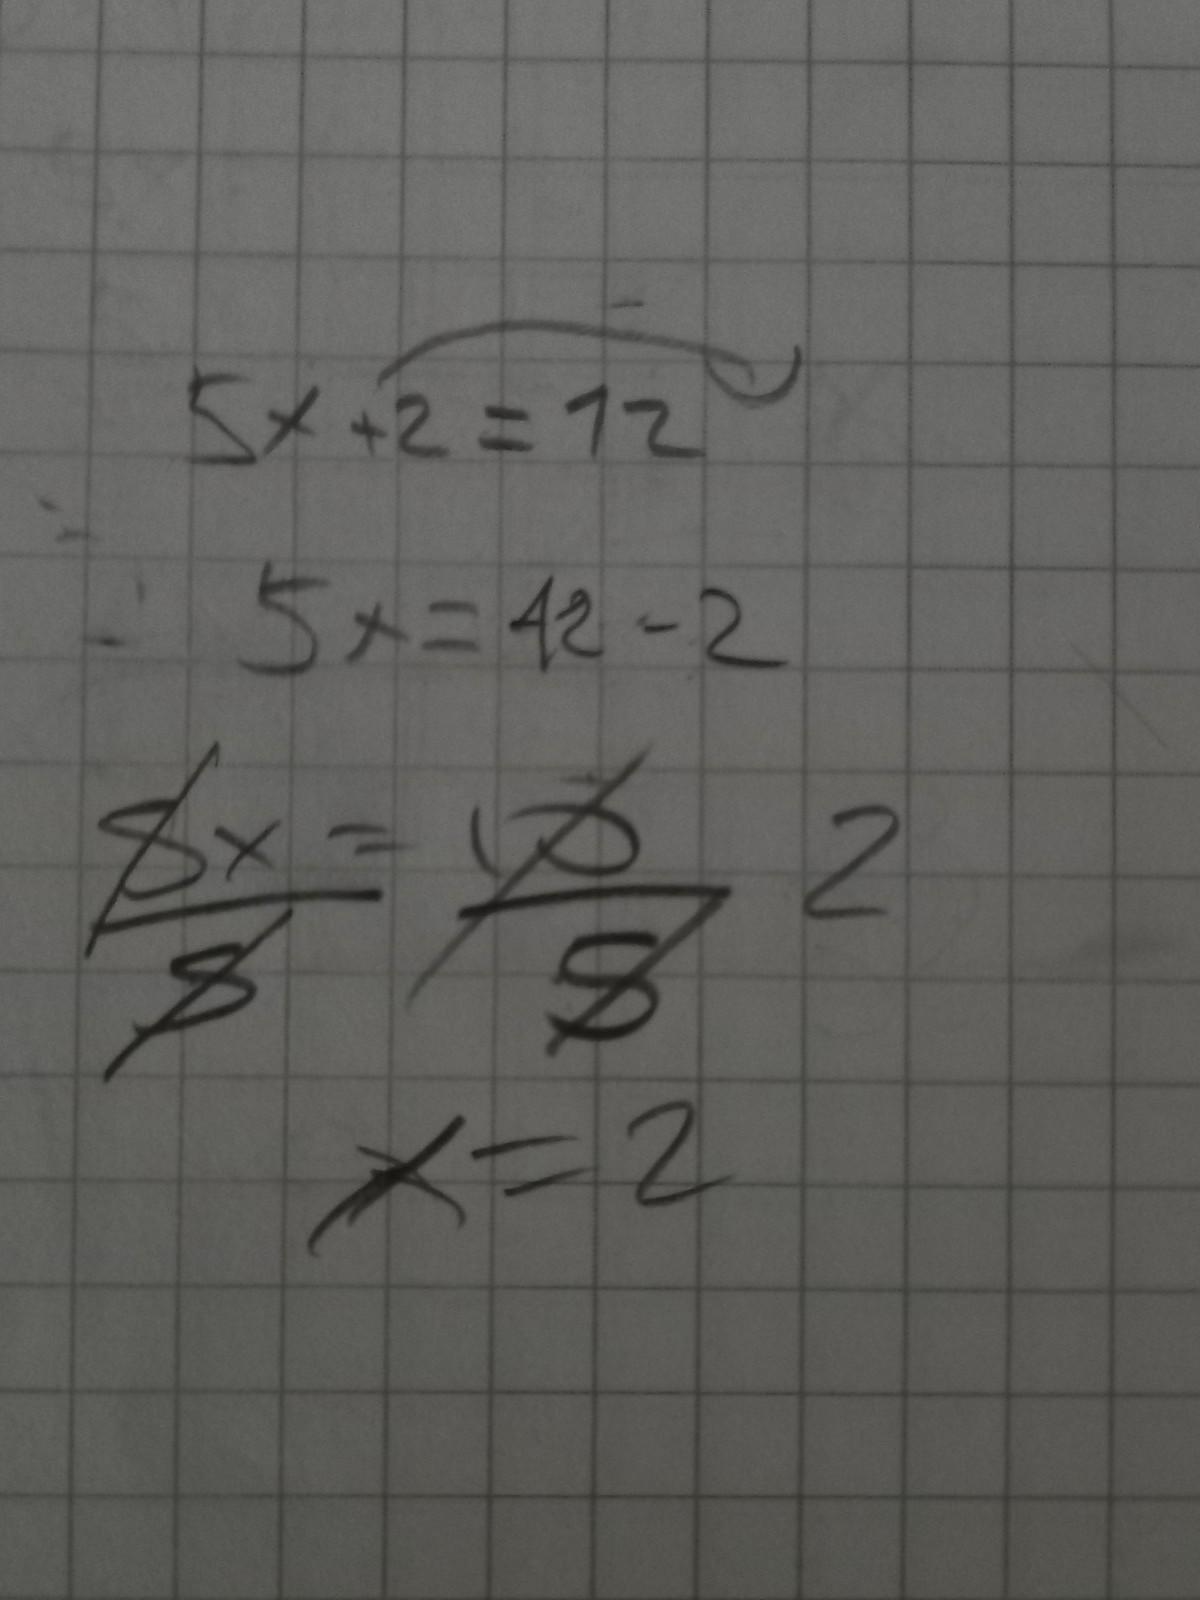 5x+2=12
5x=12-2
5x/5 = 10/5 2
x=2